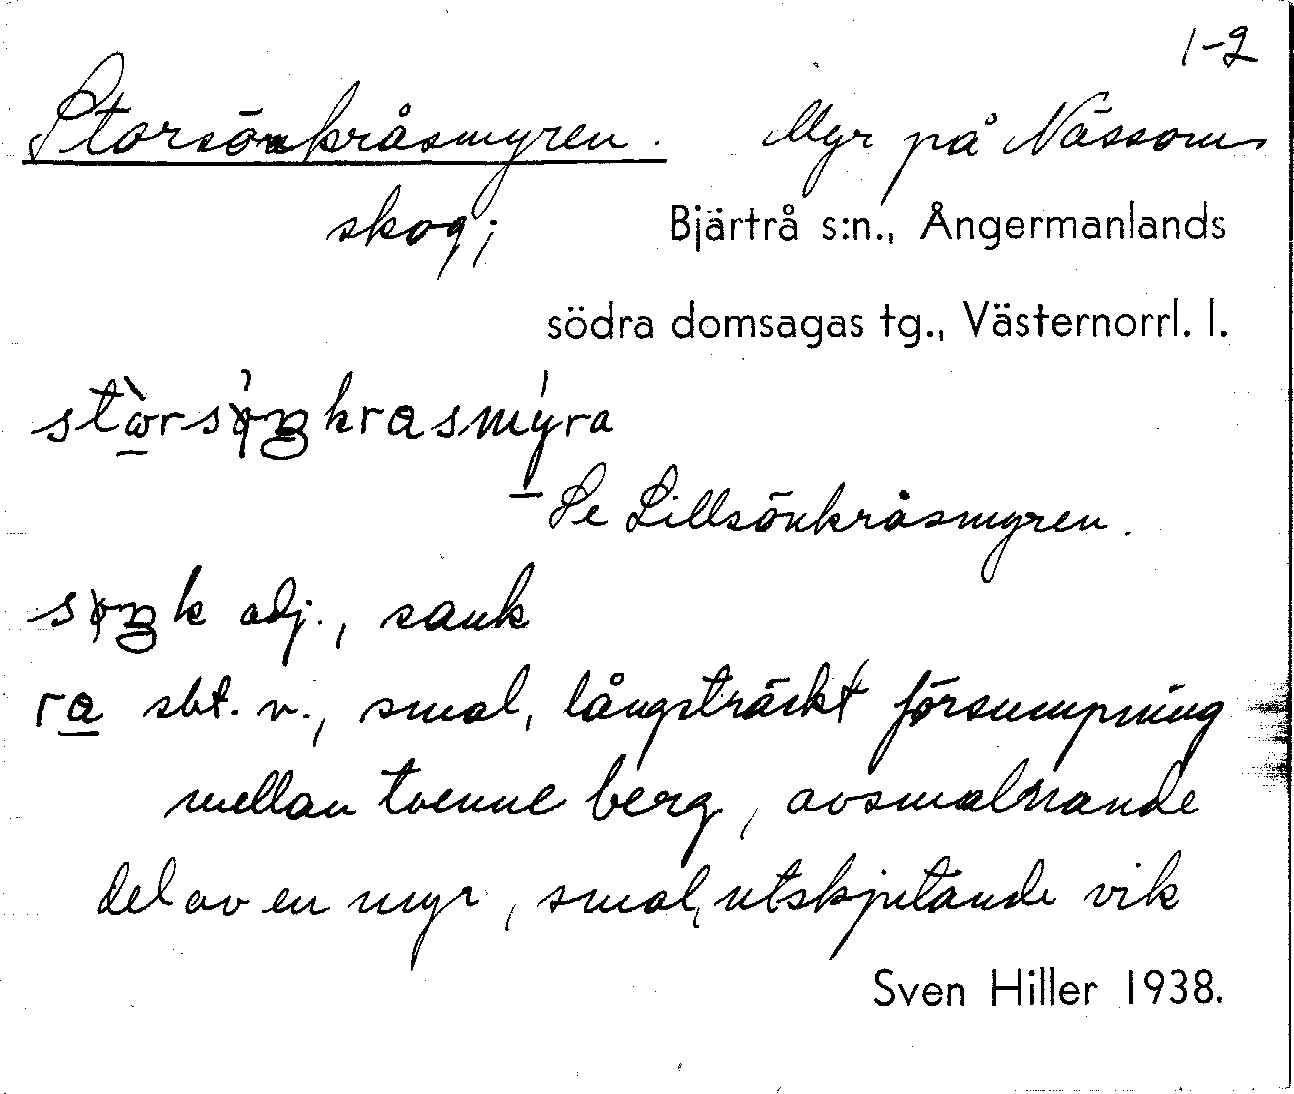 1-2
Storsönkråsmyren. Myr på Nässom
skog; Bjärtrå s:n., Ångermanlands
södra domsagas tg., Västernorrl. l.
Se Lillsönkråsmyren.
adj., sank
sbt. n., smal, långsträckt försumpning
mellan tvenne berg, avsmalnande
del av en myr, smal, utskjutande vik
Sven Hiller 1938.